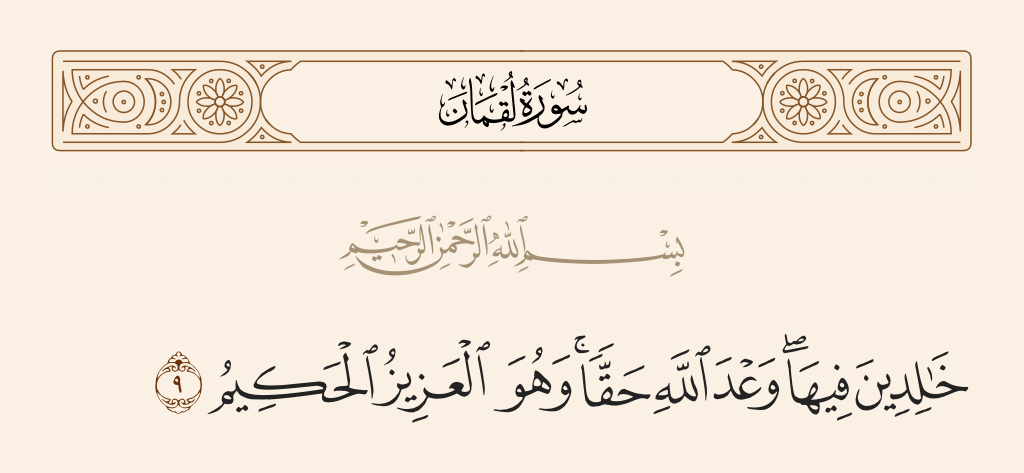 سُورَةُ لُقْمَان
بِسْمِ ٱللَّهِ ٱلرَّحْمَٰنِ ٱلرَّحِيمِ
خَٰلِدِينَ فِيهَا ۖ وَعْدَ ٱللَّهِ حَقًّا ۚ وَهُوَ ٱلْعَزِيزُ ٱلْحَكِيمُ ٩